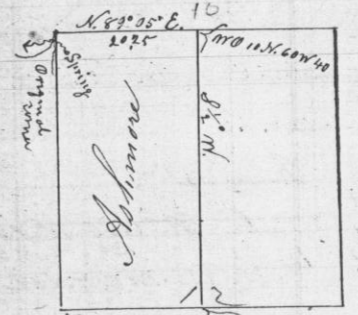 10
N. 89° 05' E.
2075
WO 10 N. 60 W 40
Original
corner
Ashmore
1 2